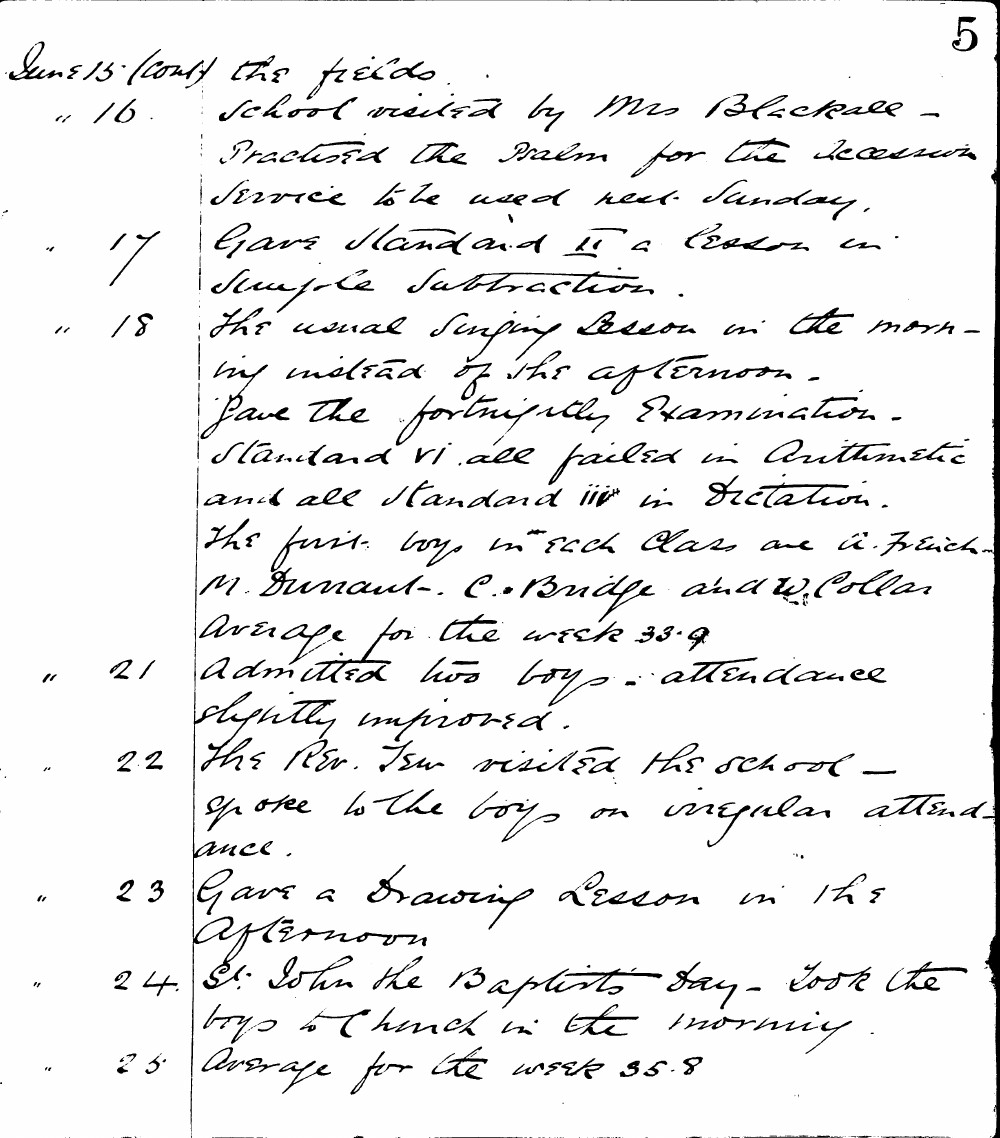 5
June 15 (Cont) the fields.
" 16. School visited by Mrs Blackall -
Practised the Psalm for the Accession
Service to be used next Sunday.
" 17 Gave Standard II a lesson in
Simple Subtraction.
" 18 The usual Singing Lesson in the morn-
ing instead of the afternoon.
Gave the fortnightly Examination.
Standard VI all failed in Arithmetic
and all Standard iii in Dictation.
The first boys in each Class are A. French
M. Durrant. C. Bridge and W. Collar
Average for the week 33.9
" 21 Admitted two boys. attendance
slightly improved.
" 22 The Rev. Tew visited the school -
spoke to the boys on irregular attend-
ance.
" 23 Gave a Drawing Lesson in the
Afternoon
" 24. St. John the Baptist's Day - Took the
boys to Church in the morning.
" 25 Average for the week 35.8